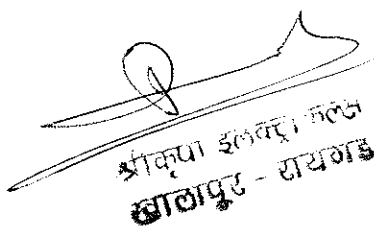 श्रीकृपा इलेक्ट्रीकल्स
खालापूर - रायगड